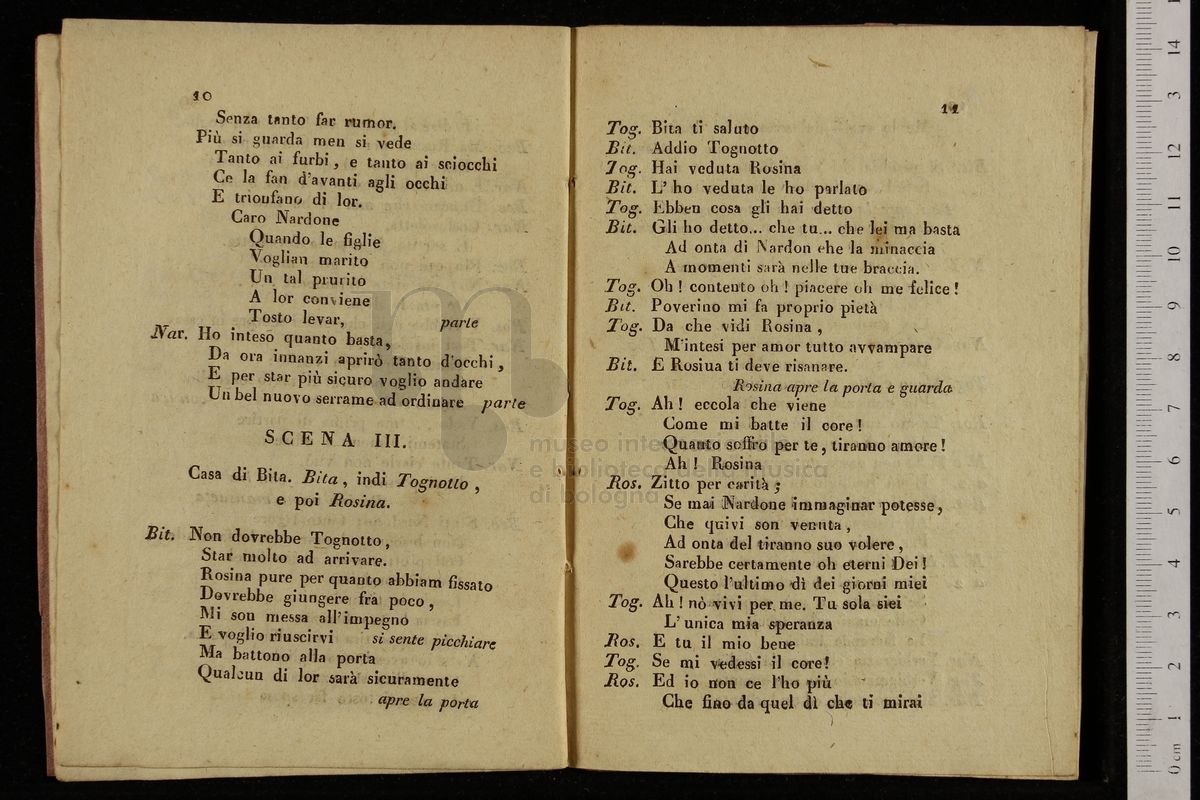 10
Senza tanto far rumor.
Più si guarda men si vede
Tanto ai furbi, e tanto ai sciocchi
Ce la fan d'avanti agli occhi
E trionfano di lor.
Caro Nardone
Quando le figlie
Voglian marito
Un tal prurito
A lor conviene
Tosto levar, parte
Nar. Ho inteso quanto basta,
Da ora innanzi aprirò tanto d'occhi,
E per star più sicuro voglio andare
Un bel nuovo serrame ad ordinare parte
SCENA III.
Casa di Bita. Bita, indi Tognotto,
e poi Rosina.
Bit. Non dovrebbe Tognotto,
Star molto ad arrivare.
Rosina pure per quanto abbiam fissato
Dovrebbe giungere fra poco,
Mi son messa all'impegno
E voglio riuscirvi si sente picchiare
Ma battono alla porta
Qualcun di lor sarà sicuramente
apre la porta
11
Tog. Bita ti saluto
Bit. Addio Tognotto
Tog. Hai veduta Rosina
Bit. L'ho veduta le ho parlato
Tog. Ebben cosa gli hai detto
Bit. Gli ho detto... che tu... che lei ma basta
Ad onta di Nardon che la minaccia
A momenti sarà nelle tue braccia.
Tog. Oh! contento oh! piacere oh me felice!
Bit. Poverino mi fa proprio pietà
Tog. Da che vidi Rosina,
M'intesi per amor tutto avvampare
Bit. E Rosina ti deve risanare.
Rosina apre la porta e guarda
Tog. Ah! eccola che viene
Come mi batte il core!
Quanto soffro per te, tiranno amore!
Ah! Rosina
Ros. Zitto per carità;
Se mai Nardone immaginar potesse,
Che quivi son venuta,
Ad onta del tiranno suo volere,
Sarebbe certamente oh eterni Dei!
Questo l'ultimo dì dei giorni miei
Tog. Ah! nò vivi per me. Tu sola siei
L'unica mia speranza
Ros. E tu il mio bene
Tog. Se mi vedessi il core!
Ros. Ed io non ce l'ho più
Che fino da quel dì che ti mirai
museo internazionale
e biblioteca della musica
di bologna
0 cm 1 2 3 4 5 6 7 8 9 10 11 12 13 14